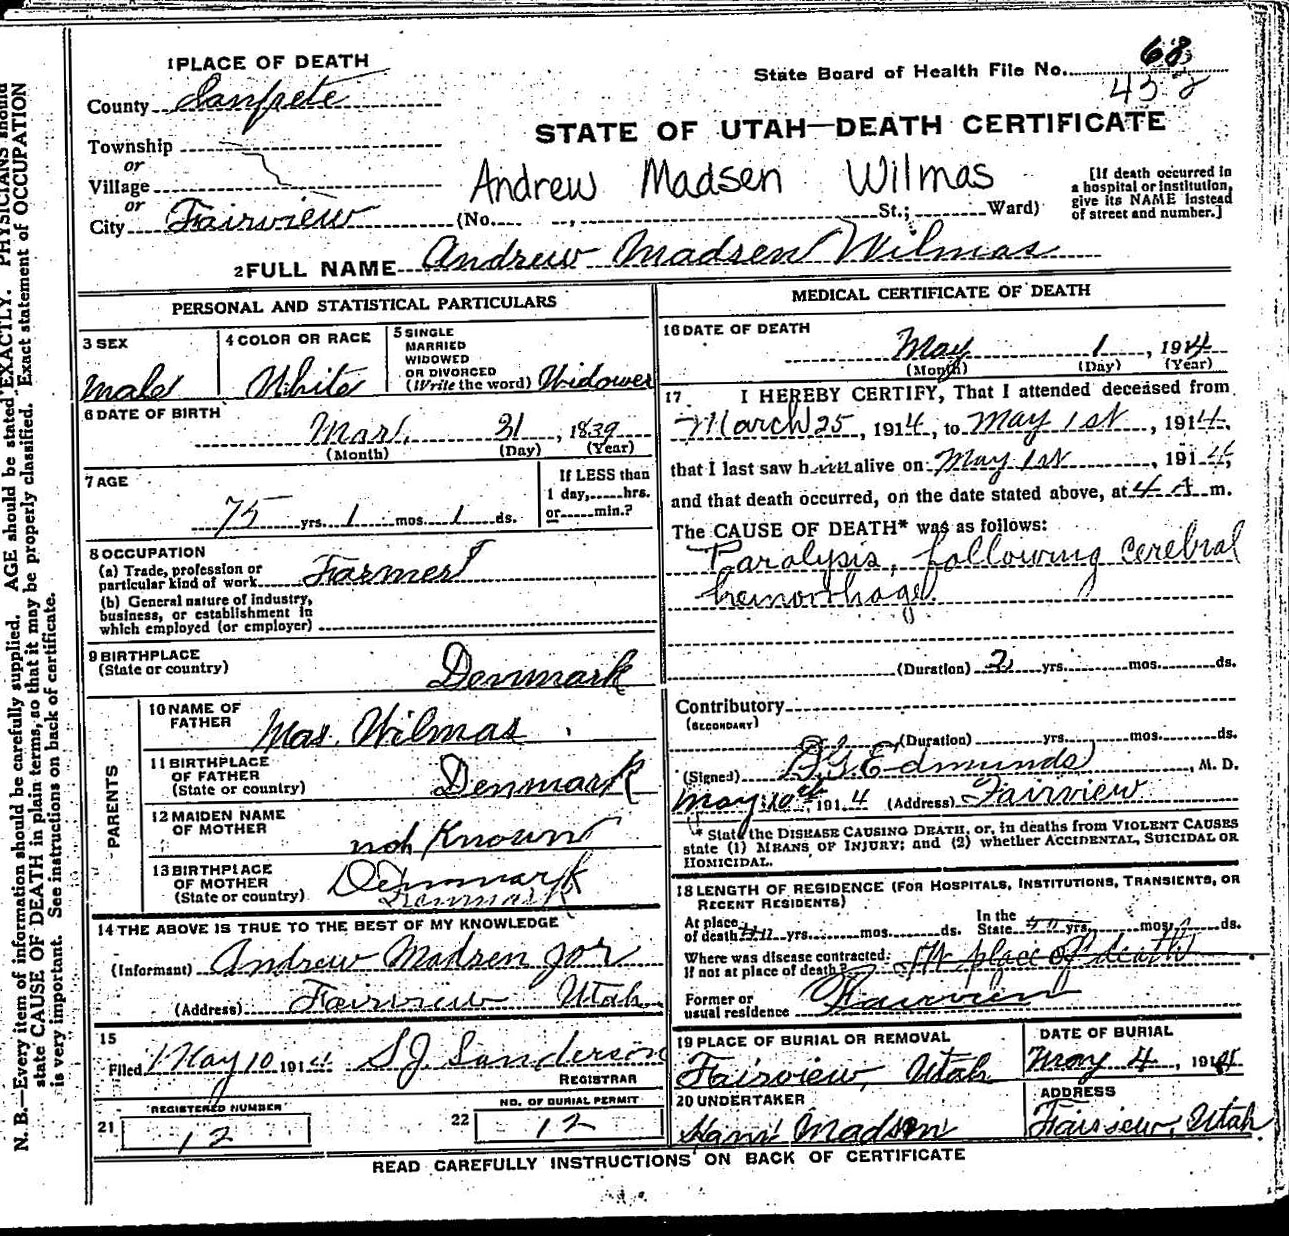 1 PLACE OF DEATH
State Board of Health File No. 68
432
County Sanpete
Township
or
Village
or
City Fairview
STATE OF UTAH—DEATH CERTIFICATE
Andrew Madsen Wilmas
(No. , St.; Ward)
[If death occurred in
a hospital or institution,
give its NAME instead
of street and number.]
2 FULL NAME Andrew Madsen Wilmas
PERSONAL AND STATISTICAL PARTICULARS
3 SEX
Male
4 COLOR OR RACE
White
5 SINGLE
MARRIED
WIDOWED
OR DIVORCED
(Write the word) Widower
6 DATE OF BIRTH
Mar. 31, 1839
(Month) (Day) (Year)
7 AGE
75 yrs. 1 mos. 1 ds.
If LESS than
1 day, hrs.
or min.?
8 OCCUPATION
(a) Trade, profession or
particular kind of work Farmer
(b) General nature of industry,
business, or establishment in
which employed (or employer)
9 BIRTHPLACE
(State or country) Denmark
PARENTS
10 NAME OF
FATHER Mas. Wilmas
11 BIRTHPLACE
OF FATHER
(State or country) Denmark
12 MAIDEN NAME
OF MOTHER not Known
13 BIRTHPLACE
OF MOTHER
(State or country) Denmark
Denmark
14 THE ABOVE IS TRUE TO THE BEST OF MY KNOWLEDGE
(Informant) Andrew Madsen Jor
(Address) Fairview Utah
15
Filed May 10 1914 S.J. Sanderson
REGISTRAR
21 REGISTERED NUMBER
12
22 NO. OF BURIAL PERMIT
12
MEDICAL CERTIFICATE OF DEATH
16 DATE OF DEATH
May 1, 1914
(Month) (Day) (Year)
17 I HEREBY CERTIFY, That I attended deceased from
March 25, 1914, to May 1st, 1914,
that I last saw him alive on May 1st, 1914,
and that death occurred, on the date stated above, at 4 A m.
The CAUSE OF DEATH* was as follows:
Paralysis, following cerebral
hemorrhage
(Duration) 2 yrs. mos. ds.
Contributory
(SECONDARY)
(Duration) yrs. mos. ds.
(Signed) B.G. Edmunds, M. D.
May 10th, 1914 (Address) Fairview
* State the DISEASE CAUSING DEATH, or, in deaths from VIOLENT CAUSES
state (1) MEANS OF INJURY; and (2) whether ACCIDENTAL, SUICIDAL OR
HOMICIDAL.
18 LENGTH OF RESIDENCE (FOR HOSPITALS, INSTITUTIONS, TRANSIENTS, OR
RECENT RESIDENTS)
At place
of death yrs. mos. ds.
In the
State yrs. mos. ds.
Where was disease contracted,
If not at place of death? At place of death
Former or
usual residence Fairview
19 PLACE OF BURIAL OR REMOVAL
Fairview, Utah
DATE OF BURIAL
May 4, 1914
20 UNDERTAKER
Hans Madsen
ADDRESS
Fairview, Utah
READ CAREFULLY INSTRUCTIONS ON BACK OF CERTIFICATE
N. B.—Every item of information should be carefully supplied. AGE should be stated EXACTLY. PHYSICIANS should
state CAUSE OF DEATH in plain terms, so that it may be properly classified. Exact statement of OCCUPATION
is very important. See instructions on back of certificate.